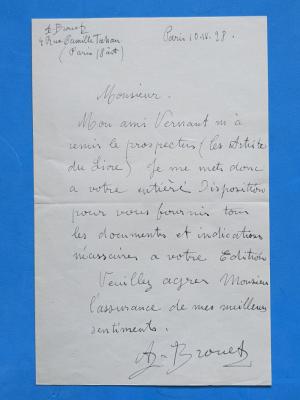 A. Brouet
4 Rue Camille Tahan
(Paris 18 Art)
Paris 10. IV. 28.
Monsieur.
Mon ami Vernant m'a
remis le prospectus (les Artistes
du Livre) Je me mets donc
a votre entière Disposition
pour vous fournir tous
les documents et indications
nécessaires a votre Edition
Veuillez agréer Monsieur
l'assurance de mes meilleurs
sentiments.
A. Brouet